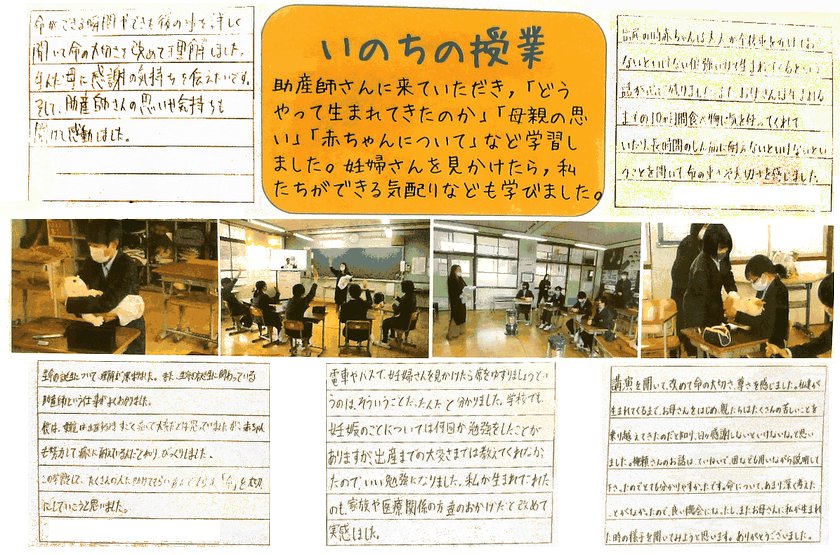 命ができる瞬間やできた後の事を、詳しく
聞いて命の大切さを改めて理解しました。
産んだ母に感謝の気持ちを伝えたいです。
そして、助産師さんの思いや気持ちも
聞けて感動しました。
いのちの授業
助産師さんに来ていただき，「どう
やって生まれてきたのか」「母親の思
い」「赤ちゃんについて」など学習し
ました。妊婦さんを見かけたら，私
たちができる気配りなども学びました。
出産の時赤ちゃんは大人が全体重をかけても
ないといけない位
話が
までの10か月間食べ物に気を使ってくれて
いたり、長時間の
うことを聞いて命の重さや大切さを感じました。
生命の誕生について、理解が深まりました。また、
助産師という仕事がよくわかりました。
僕は、
も努力して
この学習をして、たくさんの人に
にしていこうと思いました。
電車やバスで、妊婦さんを見かけたら席をゆずりましょうとい
うのは、そういうことだったんだと分かりました。学校でも、
妊娠のことについては何回か勉強をしたことが
ありますが、出産までの大変さまでは教えてくれなかっ
たので、いい勉強になりました。私が生まれてこれた
のも、家族や医療関係の方達のおかげだと改めて
実感しました。
講演を聞いて、改めて命の大切さ、尊さを感じました。私達が
生まれてくるまで、お母さんをはじめ、親たちはたくさんの苦しいことを
乗り越えてきたのだと知り、日々感謝しないといけないな、と思い
ました。柳瀬さんのお話は、ていねいで、図なども用いながら説明して
下さったのでとても分かりやすかったです。命について、あまり深く考えた
ことがなかったので、良い機会になったし、またお母さんに私が生まれ
た時の様子を聞いてみようと思います。ありがとうございました。